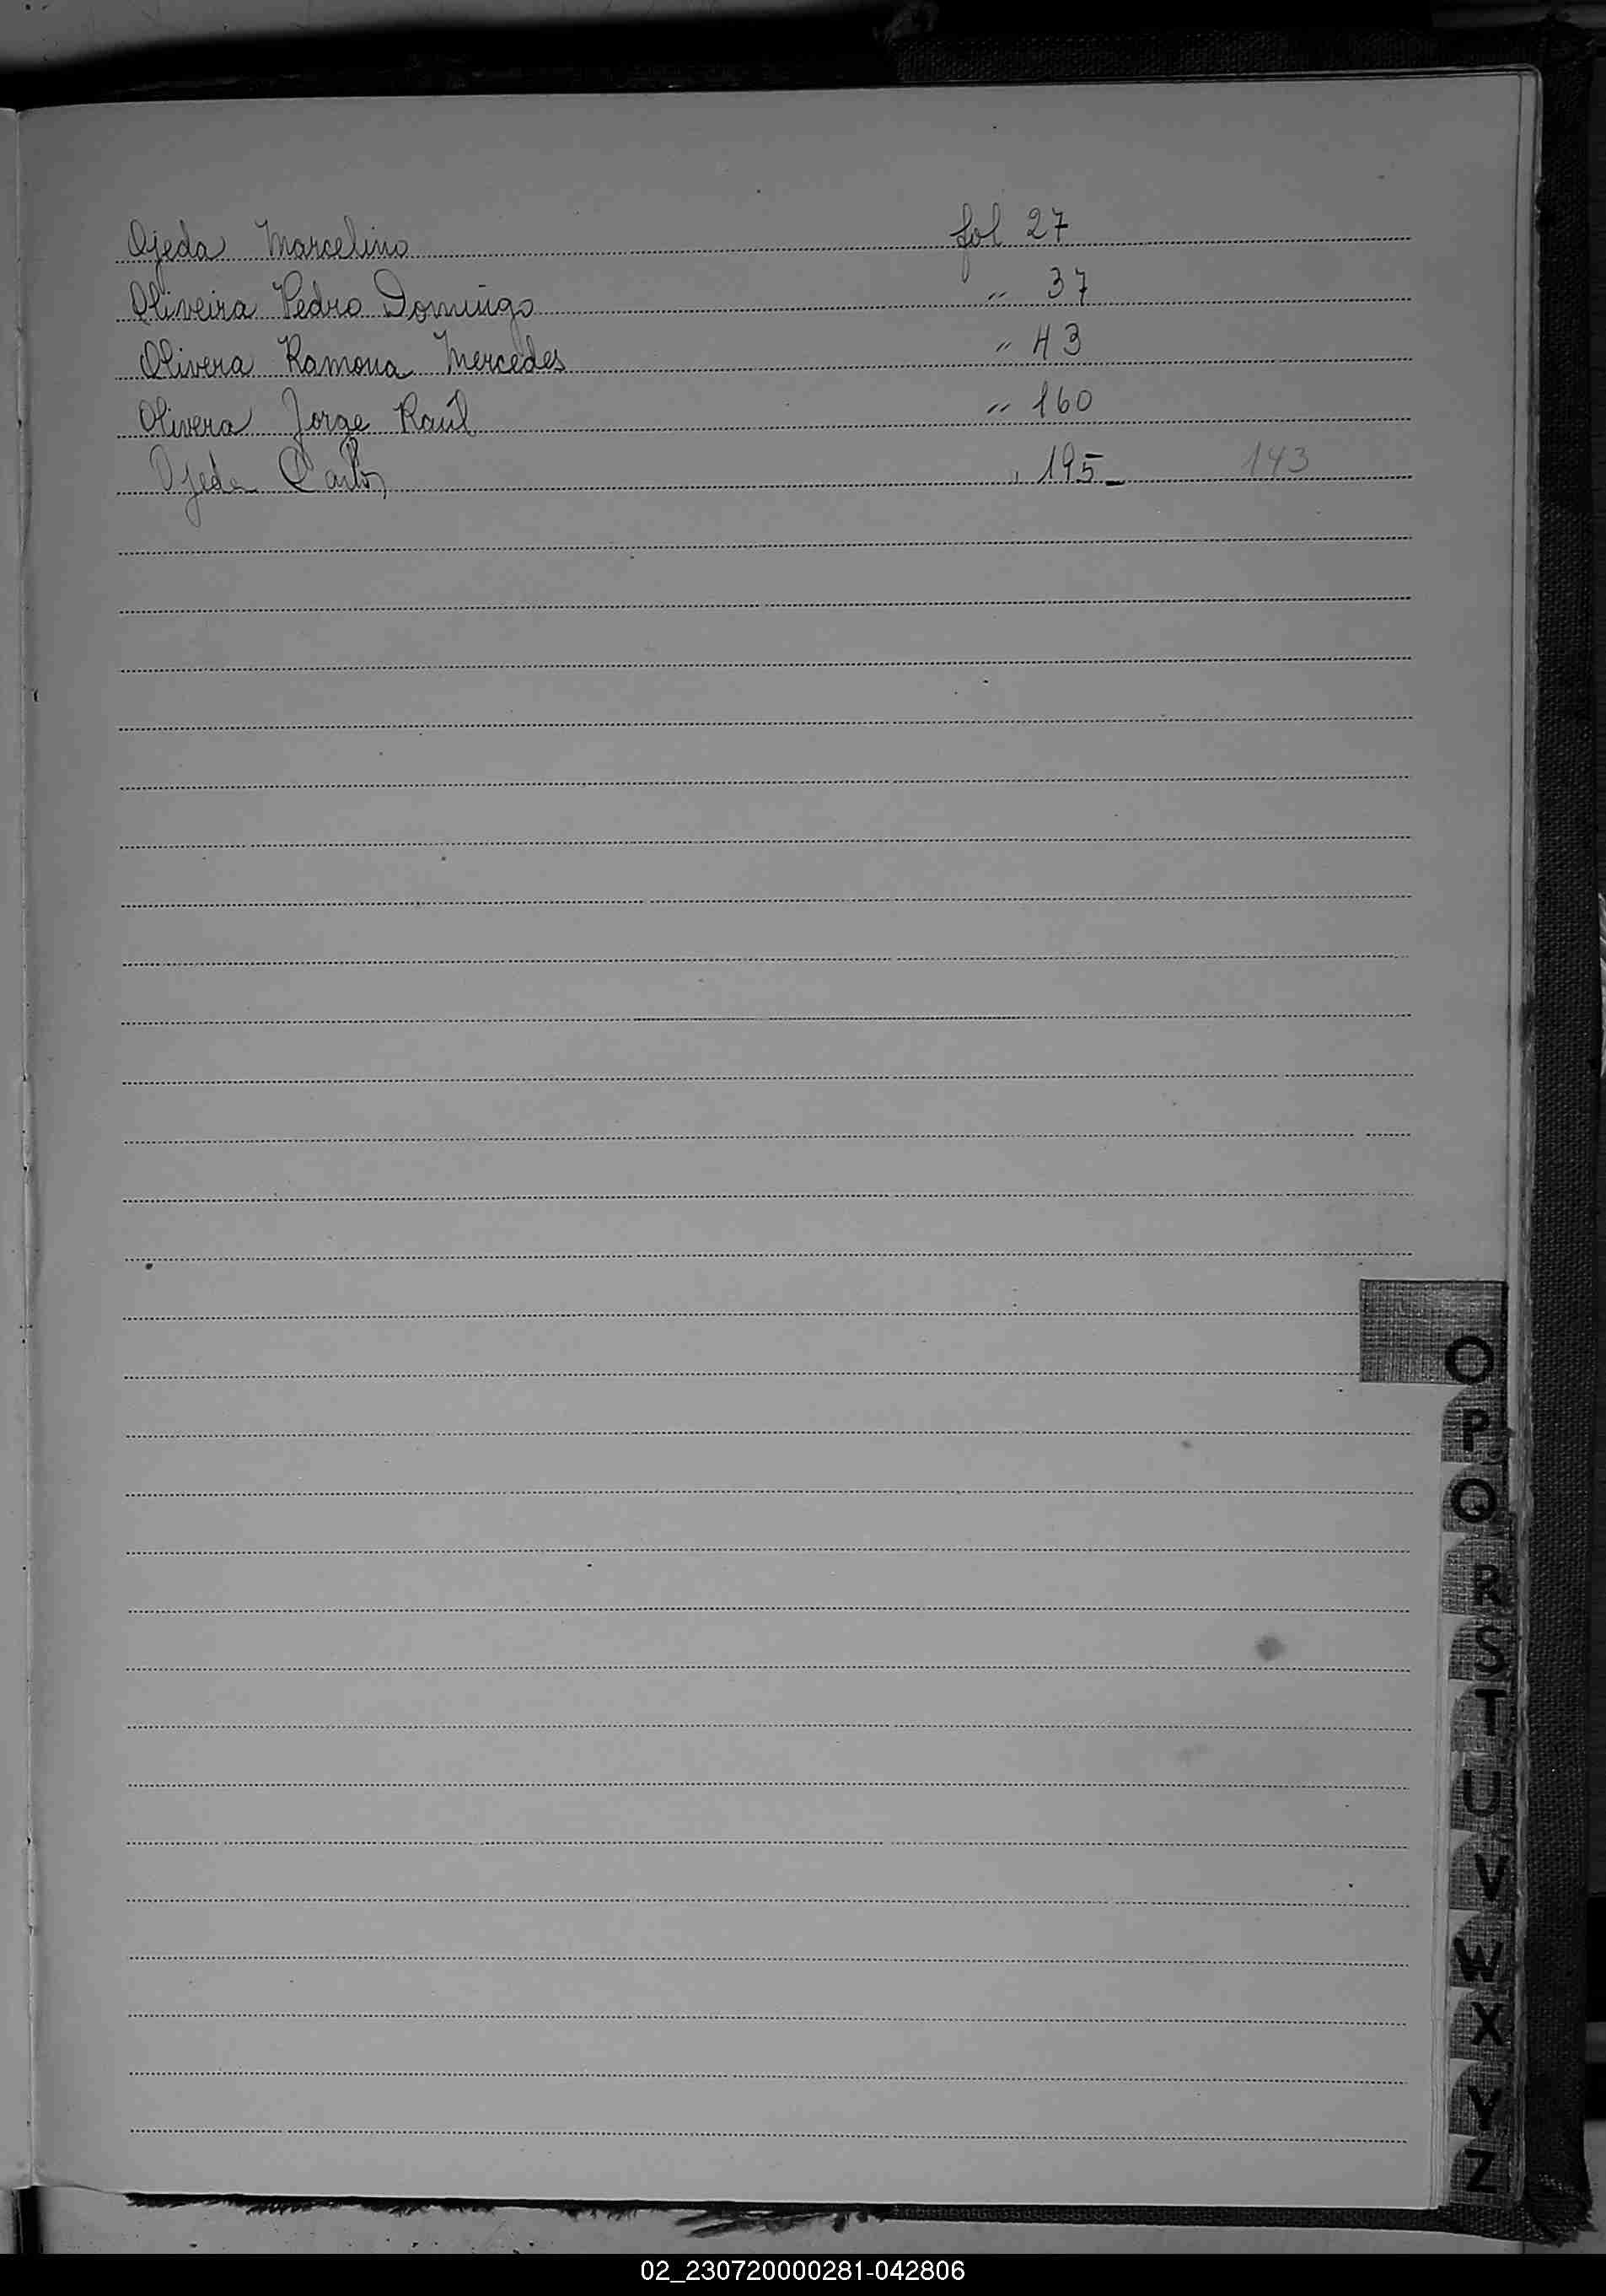 Ojeda Marcelino fol 27
Oliveira Pedro Domingo " 37
Olivera Ramona Mercedes " 43
Olivera Jorge Raúl " 160
Ojeda Carlos " 195_ 143
O
P
Q
R
S
T
U
V
W
X
Y
Z
02_230720000281-042806